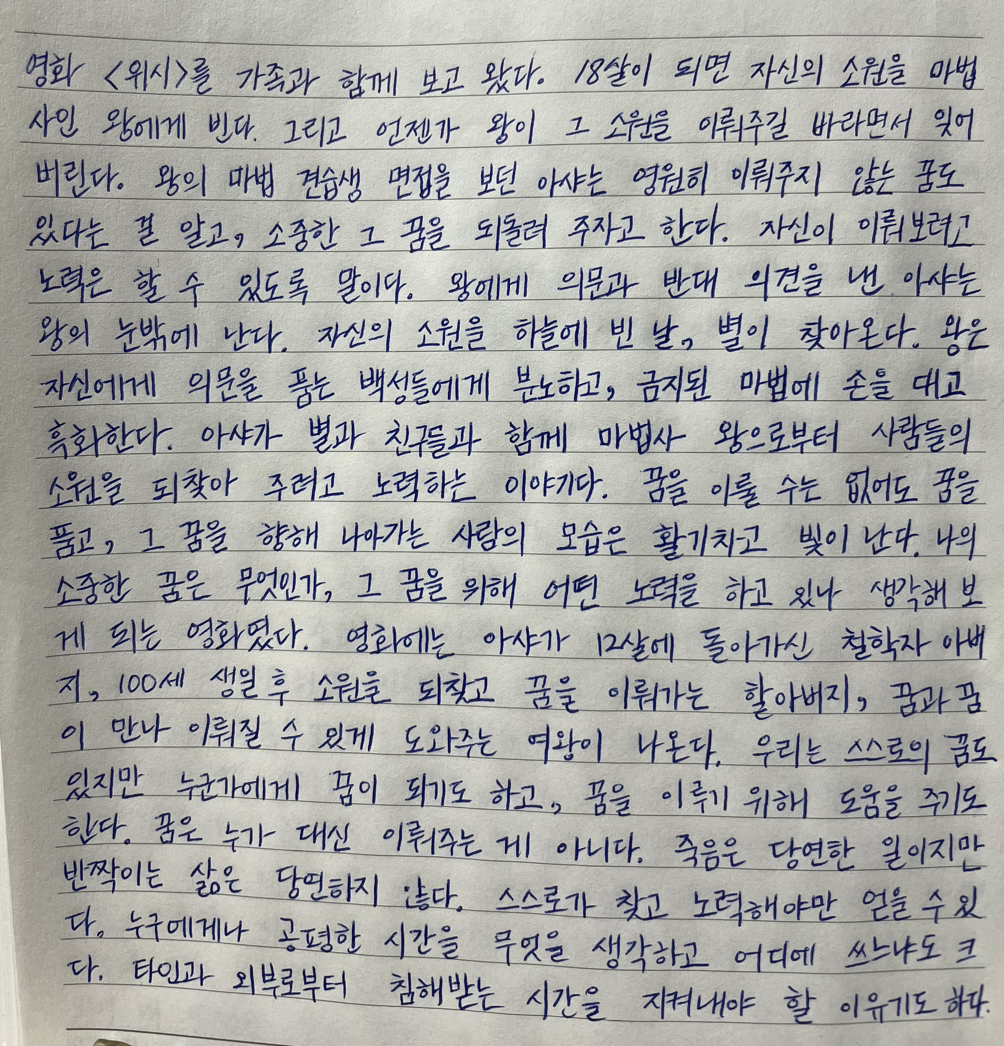 영화 <위시>를 가족과 함께 보고 왔다. 18살이 되면 자신의 소원을 마법
사인 왕에게 빈다. 그리고 언젠가 왕이 그 소원을 이뤄주길 바라면서 잊어
버린다. 왕의 마법 견습생 면접을 보던 아샤는 영원히 이뤄주지 않는 꿈도
있다는 걸 알고, 소중한 그 꿈을 되돌려 주자고 한다. 자신이 이뤄보려고
노력은 할 수 있도록 말이다. 왕에게 의문과 반대 의견을 낸 아샤는
왕의 눈밖에 난다. 자신의 소원을 하늘에 빈 날, 별이 찾아온다. 왕은
자신에게 의문을 품는 백성들에게 분노하고, 금지된 마법에 손을 대고
흑화한다. 아샤가 별과 친구들과 함께 마법사 왕으로부터 사람들의
소원을 되찾아 주려고 노력하는 이야기다. 꿈을 이룰 수는 없어도 꿈을
품고, 그 꿈을 향해 나아가는 사람의 모습은 활기차고 빛이 난다. 나의
소중한 꿈은 무엇인가, 그 꿈을 위해 어떤 노력을 하고 있나 생각해 보
게 되는 영화였다. 영화에는 아샤가 12살에 돌아가신 철학자 아버
지, 100세 생일 후 소원을 되찾고 꿈을 이뤄가는 할아버지, 꿈과 꿈
이 만나 이뤄질 수 있게 도와주는 여왕이 나온다. 우리는 스스로의 꿈도
있지만 누군가에게 꿈이 되기도 하고, 꿈을 이루기 위해 도움을 주기도
한다. 꿈은 누가 대신 이뤄주는 게 아니다. 죽음은 당연한 일이지만
반짝이는 삶은 당연하지 않다. 스스로가 찾고 노력해야만 얻을 수 있
다. 누구에게나 공평한 시간을 무엇을 생각하고 어디에 쓰느냐도 크
다. 타인과 외부로부터 침해받는 시간을 지켜내야 할 이유기도 하다.